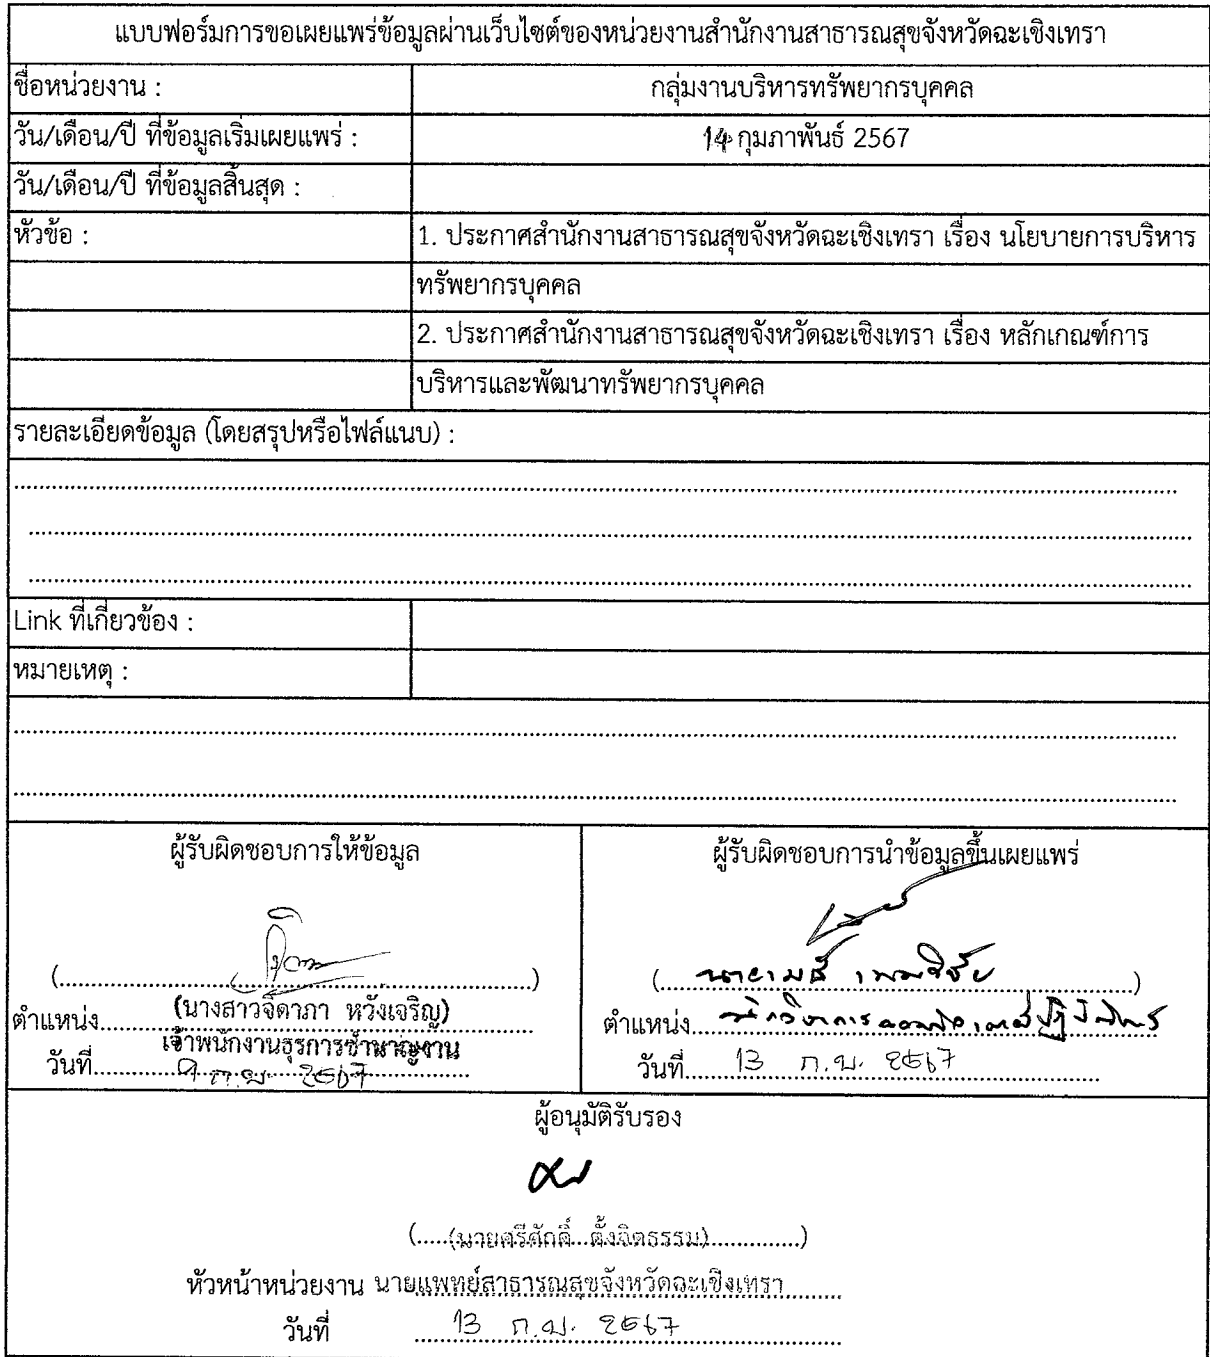 แบบฟอร์มการขอเผยแพร่ข้อมูลผ่านเว็บไซต์ของหน่วยงานสำนักงานสาธารณสุขจังหวัดฉะเชิงเทรา
ชื่อหน่วยงาน : กลุ่มงานบริหารทรัพยากรบุคคล
วัน/เดือน/ปี ที่ข้อมูลเริ่มเผยแพร่ : 14 กุมภาพันธ์ 2567
วัน/เดือน/ปี ที่ข้อมูลสิ้นสุด :
หัวข้อ : 1. ประกาศสำนักงานสาธารณสุขจังหวัดฉะเชิงเทรา เรื่อง นโยบายการบริหาร
ทรัพยากรบุคคล
2. ประกาศสำนักงานสาธารณสุขจังหวัดฉะเชิงเทรา เรื่อง หลักเกณฑ์การ
บริหารและพัฒนาทรัพยากรบุคคล
รายละเอียดข้อมูล (โดยสรุปหรือไฟล์แนบ) :
Link ที่เกี่ยวข้อง :
หมายเหตุ :
ผู้รับผิดชอบการให้ข้อมูล
(....................)
ตำแหน่ง (นางสาวจิดาภา หวังเจริญ)
เจ้าพนักงานธุรการชำนาญงาน
วันที่ 9 ก.พ. 2567
ผู้รับผิดชอบการนำข้อมูลขึ้นเผยแพร่
(นาย)
ตำแหน่ง นักวิชาการคอมพิวเตอร์ปฏิบัติการ
วันที่ 13 ก.พ. 2567
ผู้อนุมัติรับรอง
(.....(นายศรีศักดิ์ ตั้งจิตธรรม)..............)
หัวหน้าหน่วยงาน นายแพทย์สาธารณสุขจังหวัดฉะเชิงเทรา
วันที่ 13 ก.พ. 2567